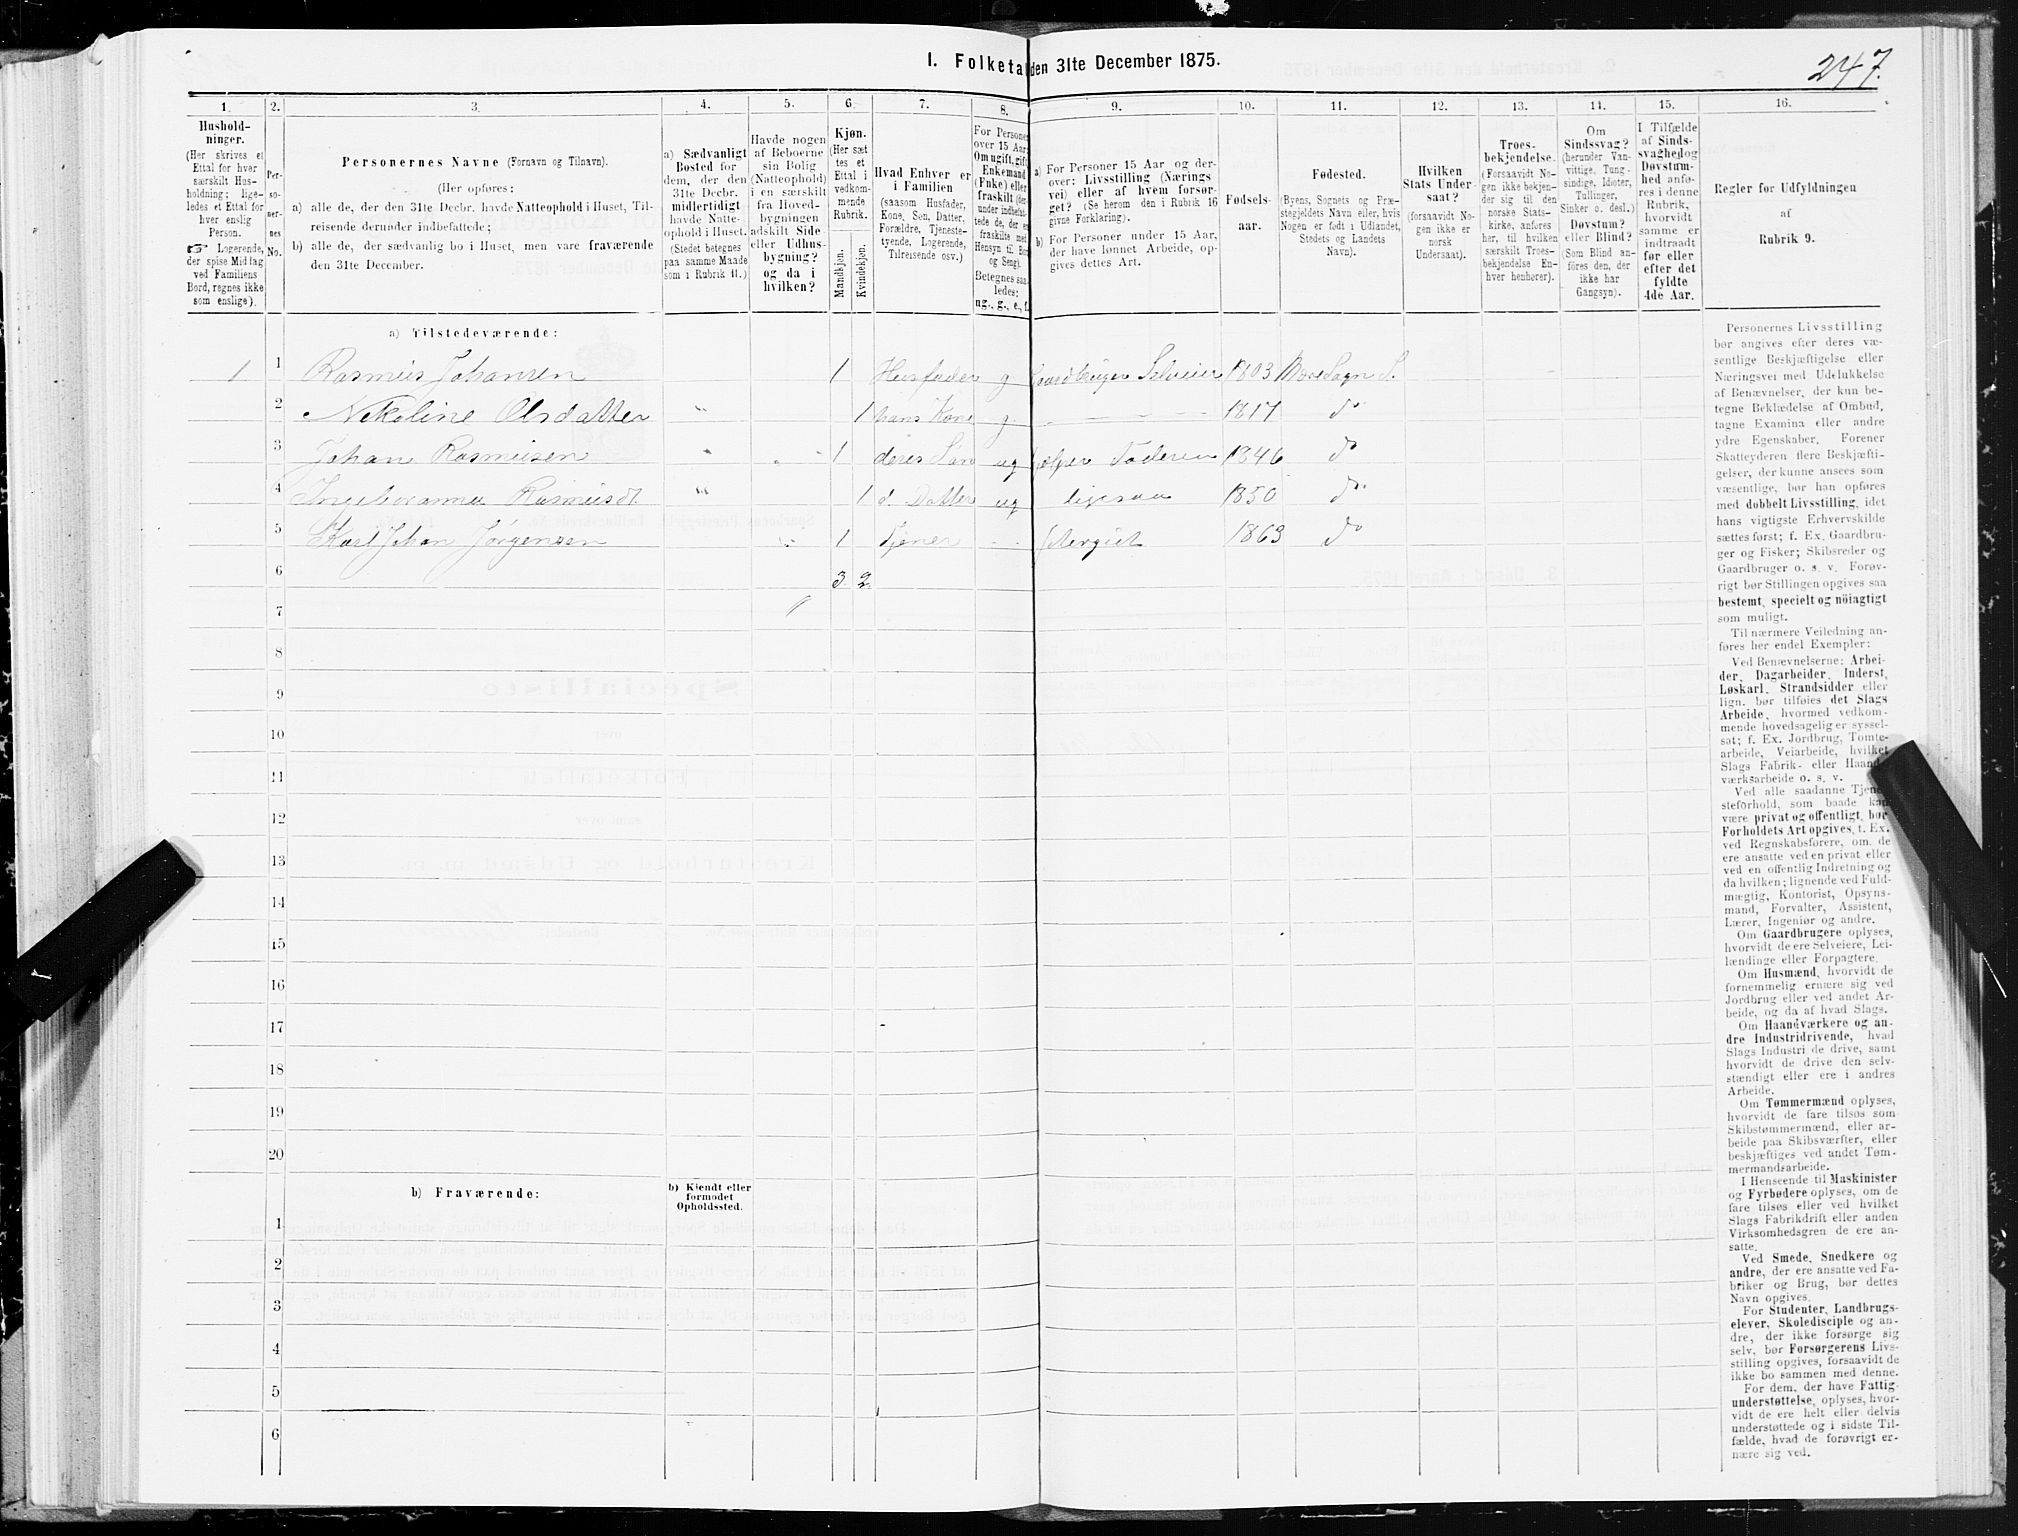 247.
I. Folketal den 31te December 1875.
1. 2. 3. 4. 5. 6. 7. 8. 9. 10. 11. 12. 13. 14. 15. 16.
Husholdninger.
(Her skrives et Ettal for hver særskilt Husholdning; ligeledes et Ettal for hver enslig Person.
☞ Logerende, der spise Middag ved Familiens Bord, regnes ikke som enslige).
Personernes No.
Personernes Navne (Fornavn og Tilnavn).
(Her opføres:
a) alle de, der den 31te Decbr. havde Natteophold i Huset, Tilreisende derunder indbefattede;
b) alle de, der sædvanlig bo i Huset, men vare fraværende den 31te December.
a) Sædvanligt Bosted for dem, der den 31te Decbr. midlertidigt havde Natteophold i Huset.
(Stedet betegnes paa samme Maade som i Rubrik 11.)
Havde nogen af Beboerne sin Bolig (Natteophold) i en særskilt fra Hovedbygningen adskilt Side- eller Udhusbygning? og da i hvilken?
Kjøn.
(Her sættes et Ettal i vedkommende Rubrik.
Mandkjøn.
Kvindekjøn.
Hvad Enhver er i Familien
(saasom Husfader, Kone, Søn, Datter, Forældre, Tjenestetyende, Logerende, Tilreisende osv.)
For Personer over 15 Aar: Om ugift, gift, Enkemand (Enke) eller fraskilt
ug., g., e., f.
a) For Personer 15 Aar og derover: Livsstilling (Næringsvei) eller af hvem forsørget? (Se herom den i Rubrik 16 givne Forklaring).
b) For Personer under 15 Aar, der have lønnet Arbeide, opgives dettes Art.
Fødselsaar.
Fødested.
(Byens, Sognets og Præstegjeldets Navn eller, hvis Nogen er født i Udlandet, Stedets og Landets Navn).
Hvilken Stats Undersaat?
(forsaavidt Nogen ikke er norsk Undersaat).
Troesbekjendelse.
(Forsaavidt Nogen ikke bekjender sig til den norske Statskirke, anføres her, til hvilken særskilt Troesbekjendelse Enhver henhører).
Om Sindssvag? (herunder Vanvittige, Tungsindige, Idioter, Tullinger, Sinker o. desl.)
Døvstum? eller Blind?
(Som Blind anføres den, der ikke har Gangsyn).
I Tilfælde af Sindssvaghed og Døvstumhed anføres i denne Rubrik, hvorvidt samme er indtraadt før eller efter det fyldte 4de Aar.
Regler for Udfyldningen
af
Rubrik 9.
a) Tilstedeværende:
1 1 Rasmus Johansen 1 Husfader g Gaardbruger Selveier 1803 Sogn S.
2 Nekoline Olsdatter " 1 hans Kone g - - - 1817 do
3 Johan Rasmusen " " 1 deres Søn ug hjelper Faderen 1846 do
4 Ingeboranna Rasmusd. " 1 d. Datter ug ligesaa 1850 do.
5 Karl Johan Jørgensen " 1 Tjener - - 1863 do
6 3. 2.
7
8
9
10
11
12
13
14
15
16
17
18
19
20
b) Fraværende:
b) Kjendt eller formodet Opholdssted.
1
2
3
4
5
6
Personernes Livsstilling
bør angives efter deres væ-
sentlige Beskjæftigelse eller
Næringsvei med Udelukkelse
af Benævnelser, der kun be-
tegne Beklædelse af Ombud,
tagne Examina eller andre
ydre Egenskaber. Forener
Skatteyderen flere Beskjæfti-
gelser, der kunne ansees som
væsentlige, bør han opføres
med dobbelt Livsstilling, idet
hans vigtigste Erhvervskilde
sættes først; f. Ex. Gaardbru-
ger og Fisker; Skibsreder og
Gaardbruger o. s. v. Forøv-
rigt bør Stillingen opgives saa
bestemt, specielt og nöiagtigt
som muligt.
Til nærmere Veiledning an-
føres her endel Exempler:
Ved Benævnelserne: Arbei-
der, Dagarbeider, Inderst,
Løskarl, Strandsidder eller
lign. bør tilføies det Slags
Arbeide, hvormed vedkom-
mende hovedsagelig er syssel-
sat; f. Ex. Jordbrug, Tomte-
arbeide, Veiarbeide, hvilket
Slags Fabrik- eller Haand-
værksarbeide o. s. v.
Ved alle saadanne Tjene-
steforhold, som baade kan
være privat og offentligt, bør
Forholdets Art opgives, t. Ex.
ved Regnskabsførere, om. de
ere ansatte ved en privat eller
ved en offentlig Indretning og
da hvilken; lignende ved Fuld-
mægtig, Kontorist, Opsyns-
mand, Forvalter, Assistent,
Lærer, Ingeniør og andre.
Om Gaardbrugere oplyses,
hvorvidt de ere Selveiere, Lei-
lændinge eller Forpagtere.
Om Husmænd, hvorvidt de
fornemmelig ernære sig ved
Jordbrug eller ved andet Ar-
beide, og da af hvad Slags.
Om Haandværkere og an-
dre Industridrivende, hvad
Slags Industri de drive, samt
hvorvidt de drive den selv-
stændigt eller ere i andres
Arbeide.
Om Tømmermænd oplyses,
hvorvidt de fare tilsøs som
Skibstømmermænd, eller ar-
beide paa Skibsværfter, eller
beskjæftiges ved andet Tøm-
mermandsarbeide.
I Henseende til Maskinister
og Fyrbødere oplyses, om de
fare tilsøs eller ved hvilket
Slags Fabrikdrift eller anden
Virksomhedsgren de ere an-
satte.
Ved Smede, Snedkere og
andre, der ere ansatte ved Fa-
briker og Brug, bør dettes
Navn opgives.
For Studenter, Landbrugs-
elever, Skoledisciple og an-
dre, der ikke forsørge sig
selv, bør Forsørgerens Livs-
stilling opgives, forsaavidt de
ikke bo sammen med denne.
For dem, der have Fattig-
understøttelse, oplyses, hvor-
vidt de ere helt eller delvis
understøttede og i sidste Til-
fælde, hvad de forøvrigt er-
nære sig ved.